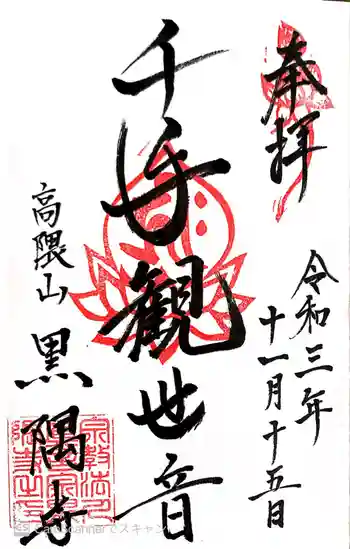 奉拝
令和三年
十一月十五日
千手観世音
高隈山
黒隅寺
CamScannerでスキャン